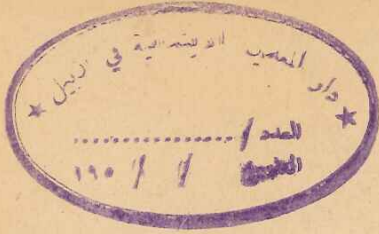 دار المعلمين الابتدائية في اربيل
العدد / ................
التاريخ / / ١٩٥